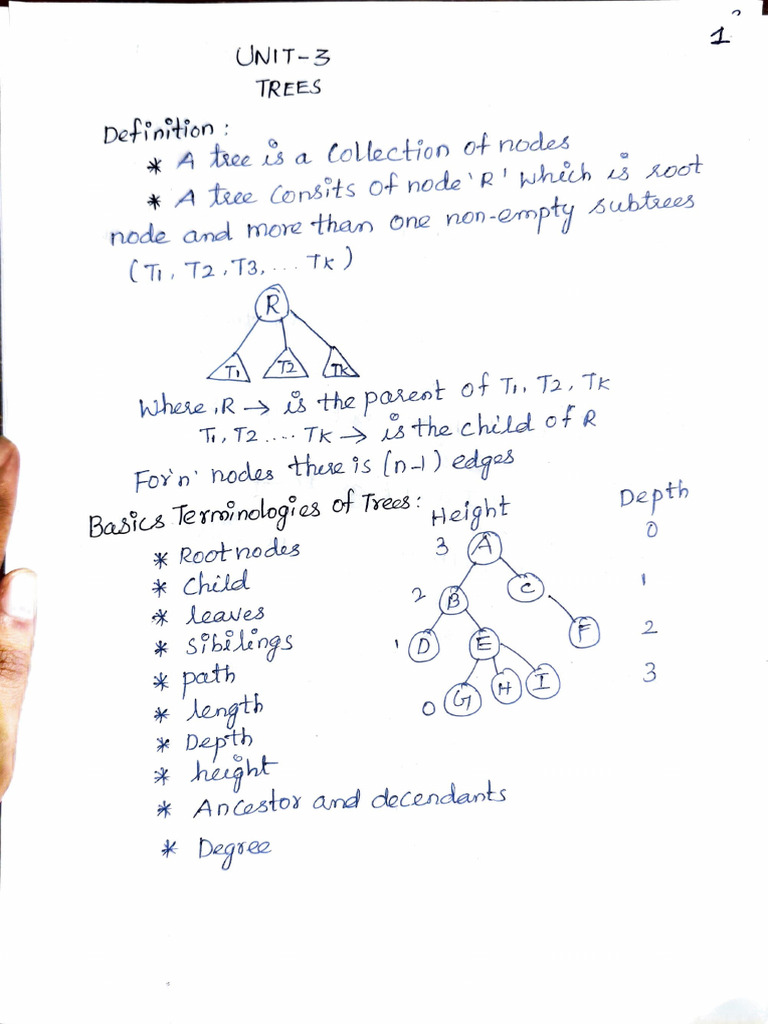 1
UNIT-3
TREES
Definition :
* A tree is a Collection of nodes
* A tree consits of node 'R' which is root
node and more than one non-empty subtrees
(T1, T2, T3, .... Tk)
R
T1 T2 Tk
Where, R → is the parent of T1, T2, Tk
T1, T2 .... Tk → is the child of R
For 'n' nodes there is (n-1) edges
Basics Terminologies of Trees :
* Root nodes
* Child
* leaves
* Sibilings
* path
* length
* Depth
* height
* Ancestor and decendants
* Degree
Height Depth
3 A 0
2 B C 1
1 D E F 2
0 G H I 3